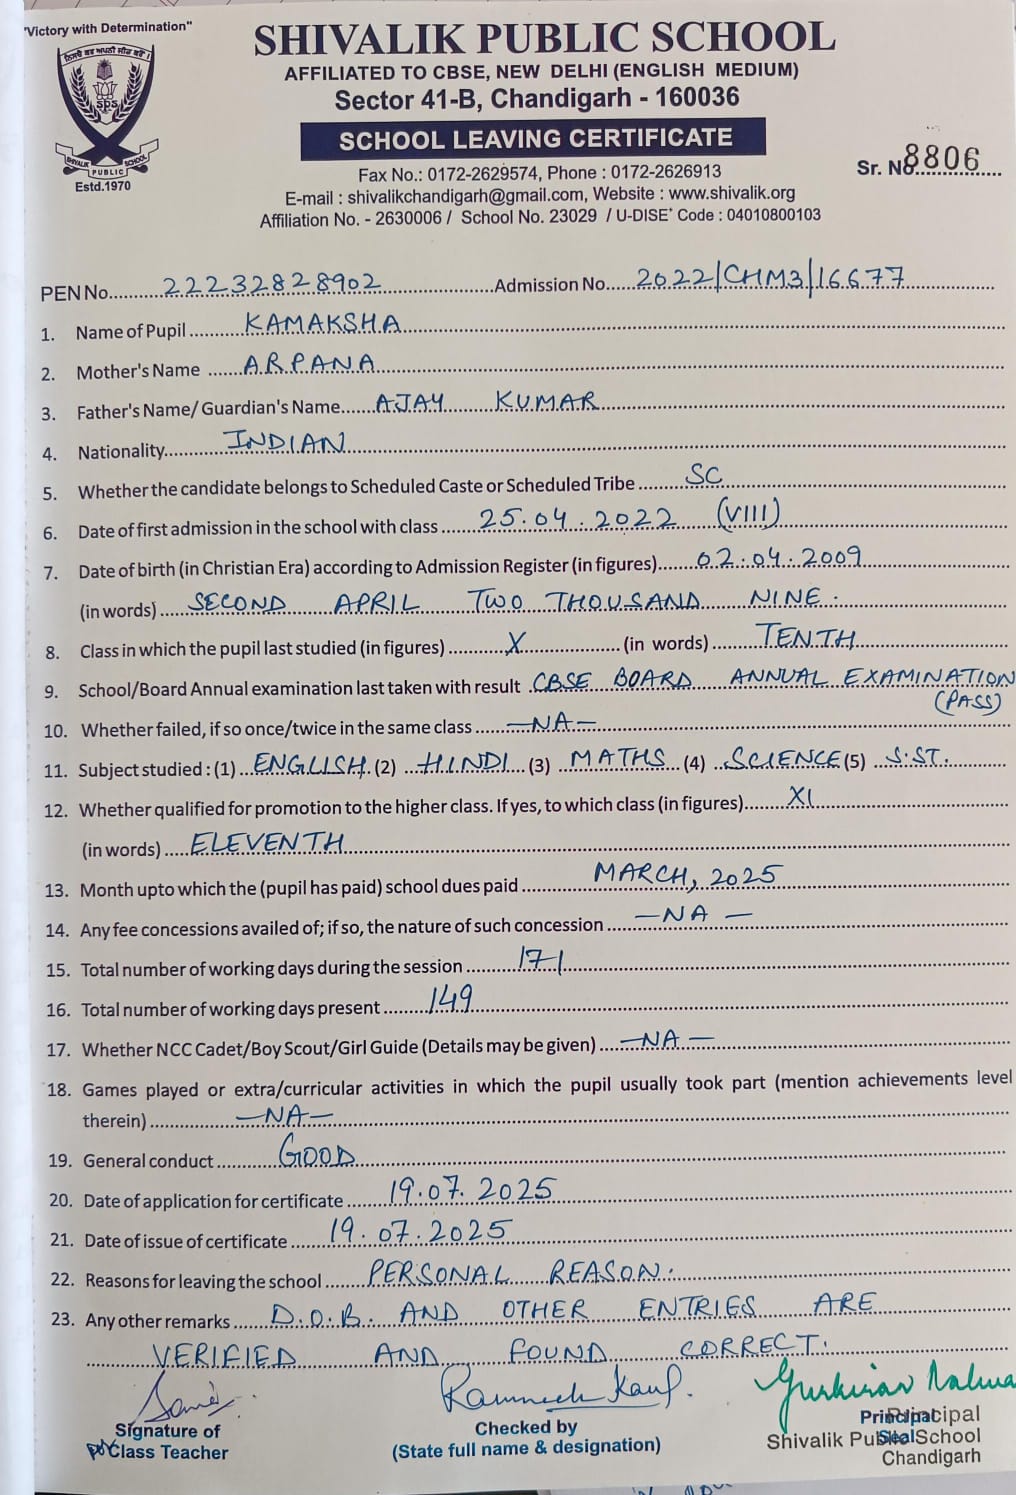 "Victory with Determination"
SHIVALIK PUBLIC SCHOOL
AFFILIATED TO CBSE, NEW DELHI (ENGLISH MEDIUM)
Sector 41-B, Chandigarh - 160036
SCHOOL LEAVING CERTIFICATE
sps
SHIVALIK PUBLIC SCHOOL
Estd.1970
Fax No.: 0172-2629574, Phone : 0172-2626913
E-mail : shivalikchandigarh@gmail.com, Website : www.shivalik.org
Affiliation No. - 2630006 / School No. 23029 / U-DISE Code : 04010800103
Sr. No. 8806
PEN No. 22232828902 Admission No. 2022/CHM3/16677
1. Name of Pupil KAMAKSHA
2. Mother's Name ARPANA
3. Father's Name/ Guardian's Name AJAY KUMAR
4. Nationality INDIAN
5. Whether the candidate belongs to Scheduled Caste or Scheduled Tribe SC
6. Date of first admission in the school with class 25.04.2022 (VIII)
7. Date of birth (in Christian Era) according to Admission Register (in figures) 02.04.2009
(in words) SECOND APRIL TWO THOUSAND NINE.
8. Class in which the pupil last studied (in figures) X (in words) TENTH
9. School/Board Annual examination last taken with result CBSE BOARD ANNUAL EXAMINATION
(PASS)
10. Whether failed, if so once/twice in the same class —NA—
11. Subject studied : (1) ENGLISH (2) HINDI (3) MATHS (4) SCIENCE (5) S.ST.
12. Whether qualified for promotion to the higher class. If yes, to which class (in figures) XI
(in words) ELEVENTH
13. Month upto which the (pupil has paid) school dues paid MARCH, 2025
14. Any fee concessions availed of; if so, the nature of such concession —NA—
15. Total number of working days during the session 171
16. Total number of working days present 149
17. Whether NCC Cadet/Boy Scout/Girl Guide (Details may be given) —NA—
18. Games played or extra/curricular activities in which the pupil usually took part (mention achievements level
therein) —NA—
19. General conduct GOOD
20. Date of application for certificate 19.07.2025
21. Date of issue of certificate 19.07.2025
22. Reasons for leaving the school PERSONAL REASON.
23. Any other remarks D.O.B. AND OTHER ENTRIES ARE
VERIFIED AND FOUND CORRECT.
Signature of
Class Teacher
Kaur.
Checked by
(State full name & designation)
Principal
Seal
Principal
Shivalik Public School
Chandigarh